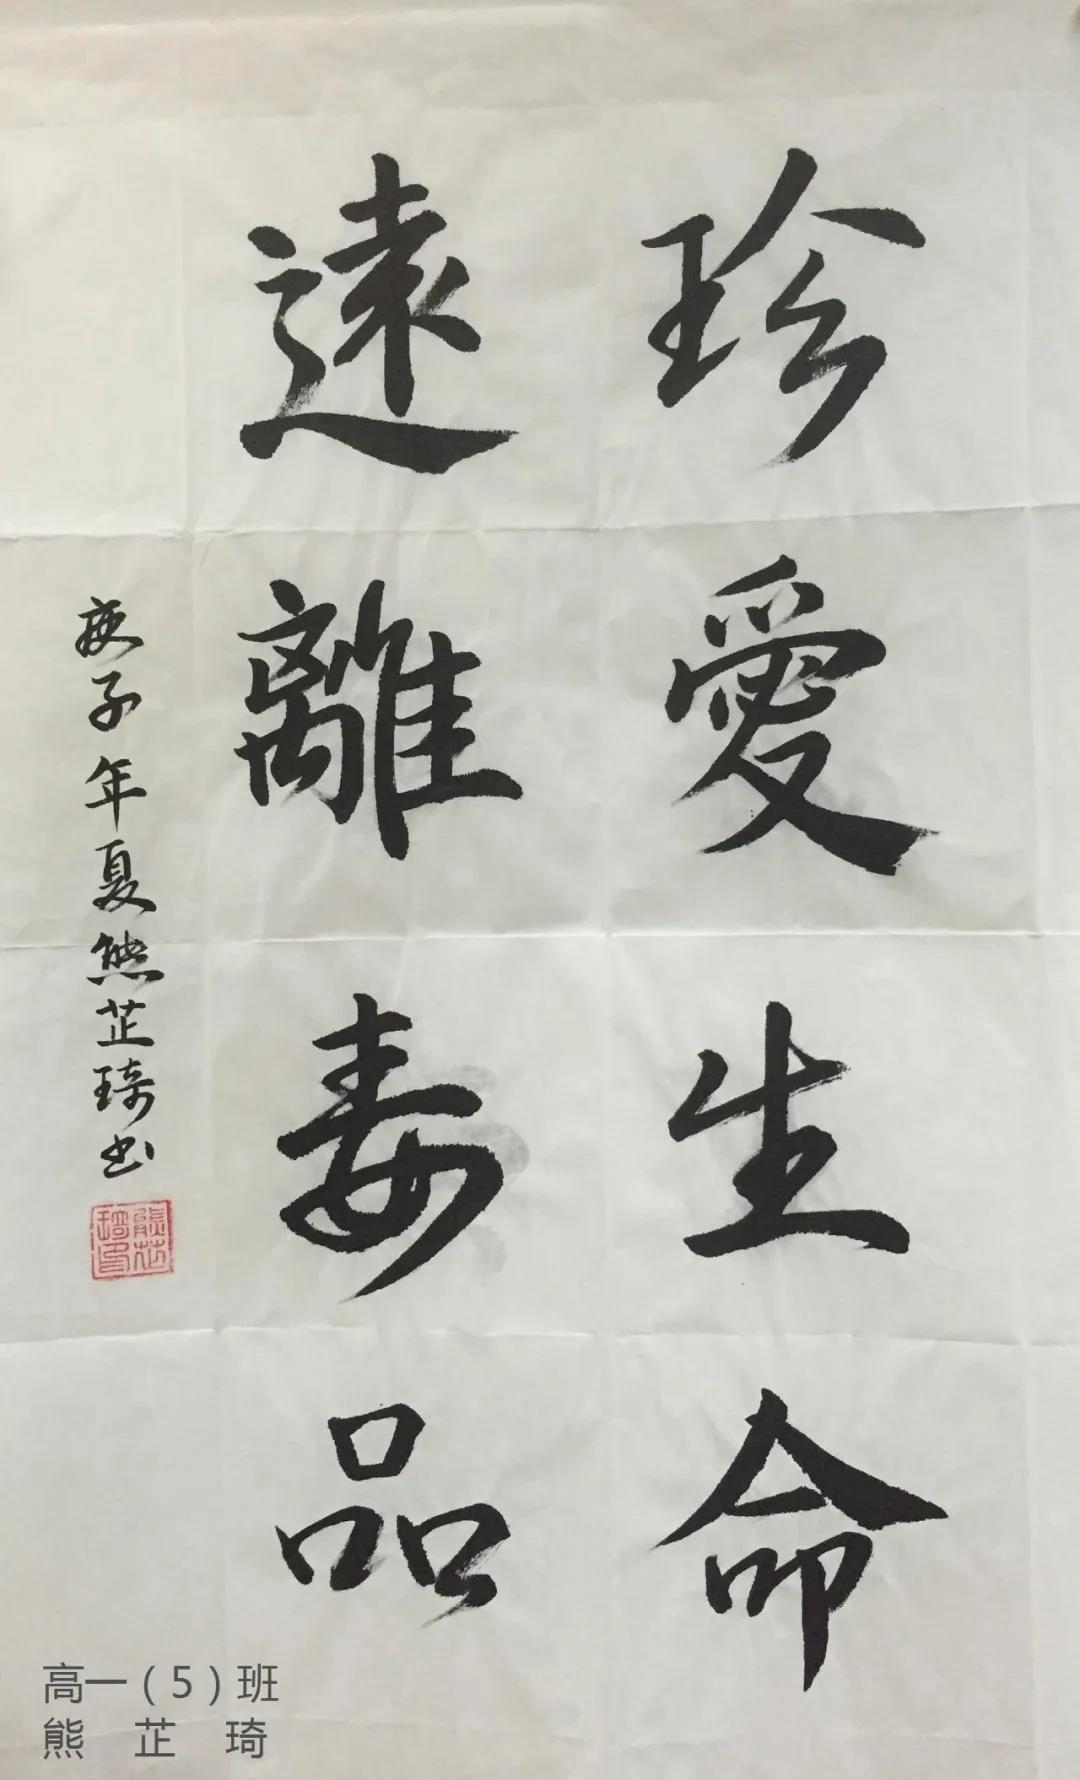 珍愛生命
遠離毒品
庚子年夏熊芷琦书
熊芷琦印
高一(5)班
熊芷琦